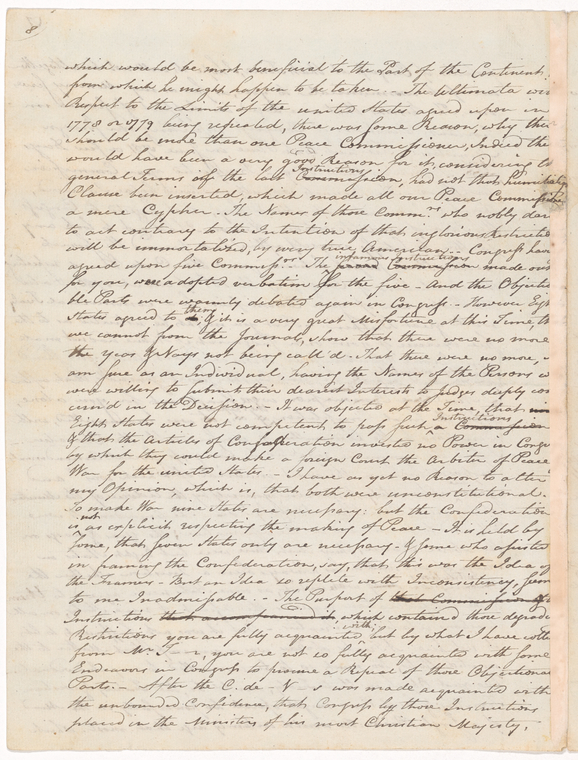 8
which would be most beneficial to the Part of the Continent
from which he might happen to be taken. - The Ultimata wi
Respect to the Limits of the united States agreed upon in
1778 or 1779 being repealed, there was some Reason, why ther
should be more than one Peace Commissioner, Indeed the
would have been a very good Reason for it, considering th
general Terms of the last Commission, Instructions had not that humiliatg
Clause been inserted, which made all our Peace Commissione
a mere Cypher - The Names of those Commrs who nobly dar
to act contrary to the Intention of that inglorious Restrictio
will be immortalized, by every true American. - Congress havg
agreed upon five Commissrs - The infamous Instructions made out
for you, were adopted verbatim for the five - And the Objectio
ble Parts were warmly debated again in Congress - However Eigh
States agreed to them & it is a very great Misfortune at this Time, th
we cannot from the Journals, show that there were no more
the Yeas & Nays not being call'd. That there were no more, I
am sure as an Individual, having the Names of the Persons w
were willing to submit their dearest Interests to Judges deeply con
cern'd in the Decision. - It was objected at the Time, that
Eight States were not competent to pass such Instructions a Commission
& that the Articles of Confederation invested no Power in Congr
by which they could make a foreign Court the Arbiter of Peace
War for the united States. - I have as yet no Reason to alter
my Opinion, which is, that both were unconstitutional.
To make War nine States are necessary: but the Confederation
is not as explicit respecting the making of Peace - It is held by
some, that seven States only are necessary - & some who assisted
in framing the Confederation, say, that, this was the Idea of
the Framers - But an Idea so replete with Inconsistency, seem
to me Inadmissible. - The Purport of that Commission
Instructions that accompanied it, which contain'd those degradi
Restrictions you are fully acquainted with; but by what I have
from Mr. you are not so fully acquainted with some
Endeavors in Congress to procure a Repeal of those Objectional
Parts. - After the C. de - V - s was made acquainted with
the unbounded Confidence, that Congress by those Instructions
placed in the Ministers of his most Christian Majesty,